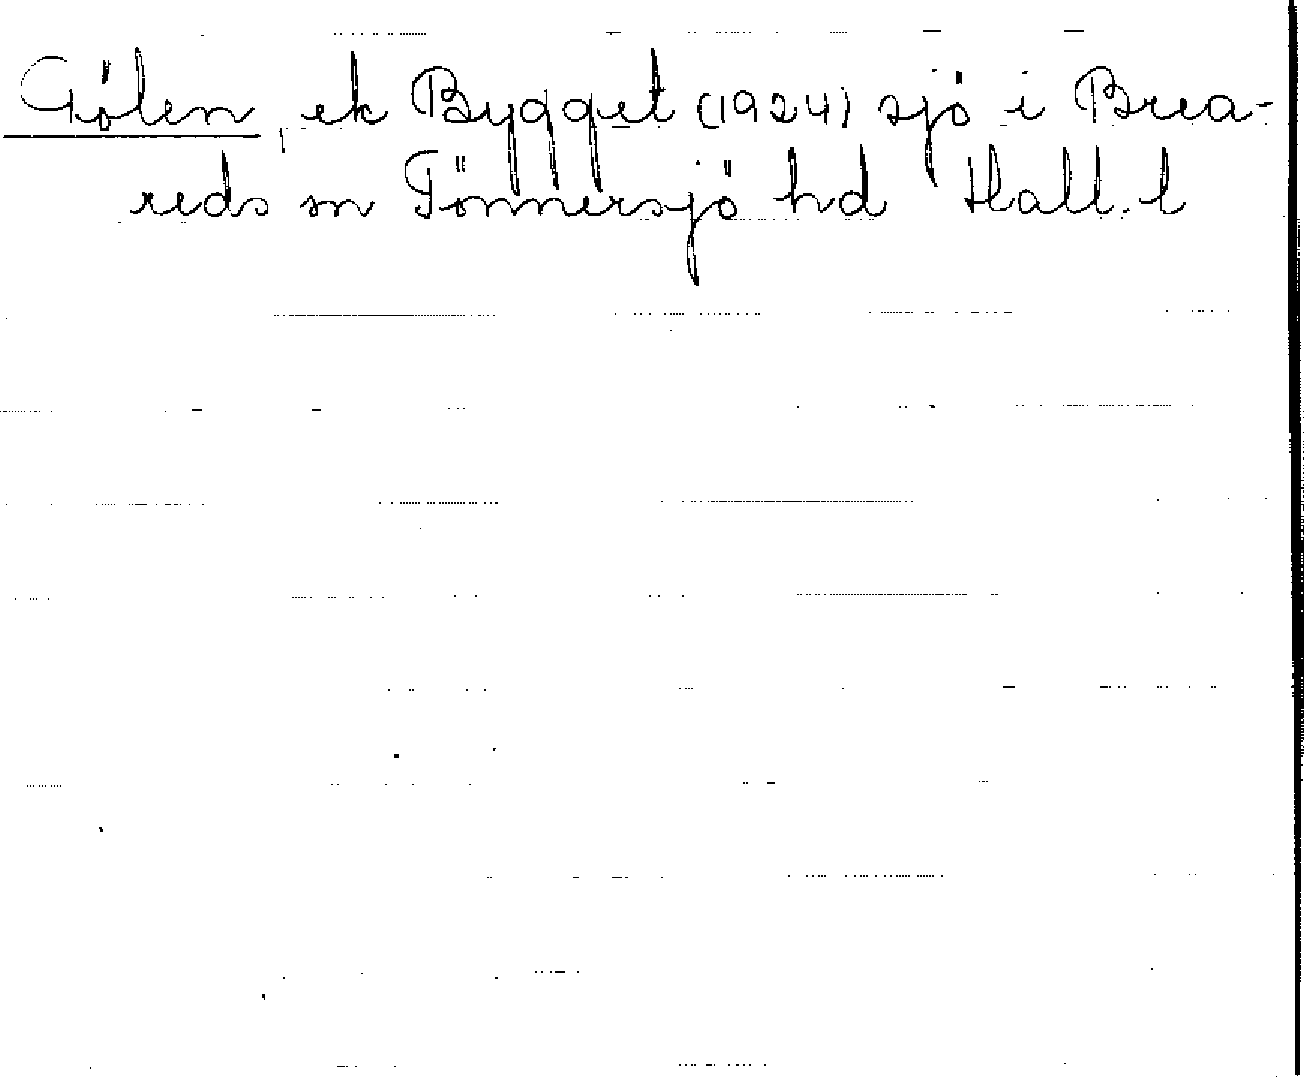 Gölen, ek Bygget (1924) sjö i Brea-
reds sn Tönnersjö hd Hall. l